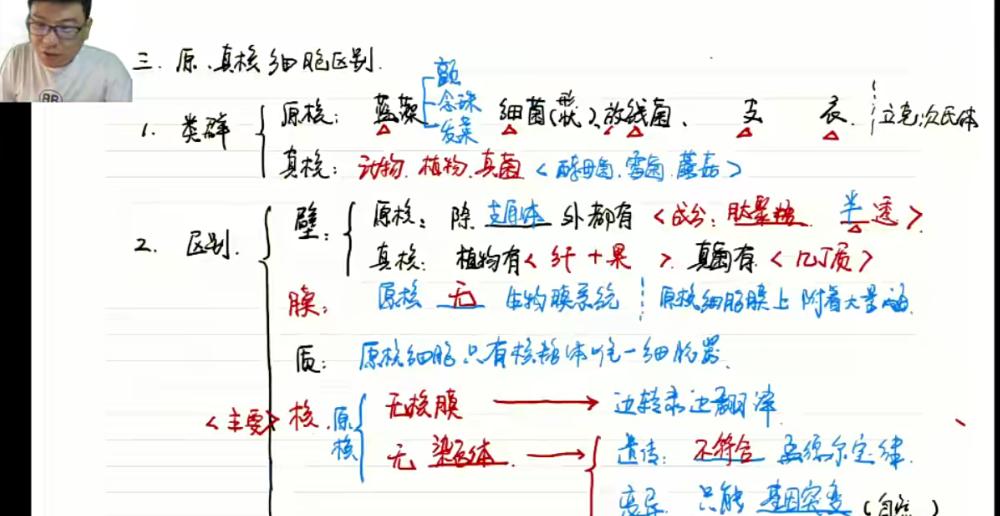 三. 原、真核细胞区别.
1. 类群 原核: 蓝藻 颤 念珠 发菜 细菌(形状)、放线菌、 支 衣. 立克次氏体
真核: 动物. 植物. 真菌 <酵母菌. 霉菌. 蘑菇>
2. 区别. 壁: 原核: 除 支原体 外都有 <成分: 肽聚糖 半透>
真核: 植物有<纤+果>. 真菌有<几丁质>
膜: 原核 无 生物膜系统 原核细胞膜上附着大量酶.
质: 原核细胞只有核糖体唯一细胞器.
<主要> 核. 原核 无核膜 → 边转录边翻译
无 染色体. → 遗传: 不符合 孟德尔定律.
变异. 只能 基因突变 (自然)